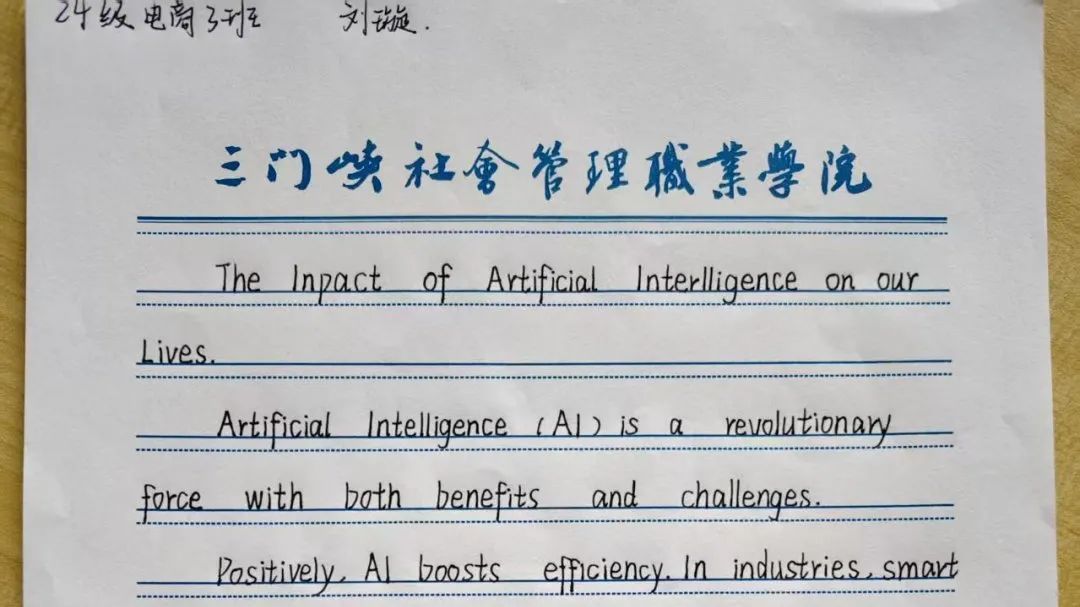 24级电商3班 刘璇.
三门峡社會管理職業學院
The Inpact of Artificial Interlligence on our
Lives.
Artificial Intelligence (AI) is a revolutionary
force with both benefits and challenges.
Positively, AI boosts efficiency. In industries, smart